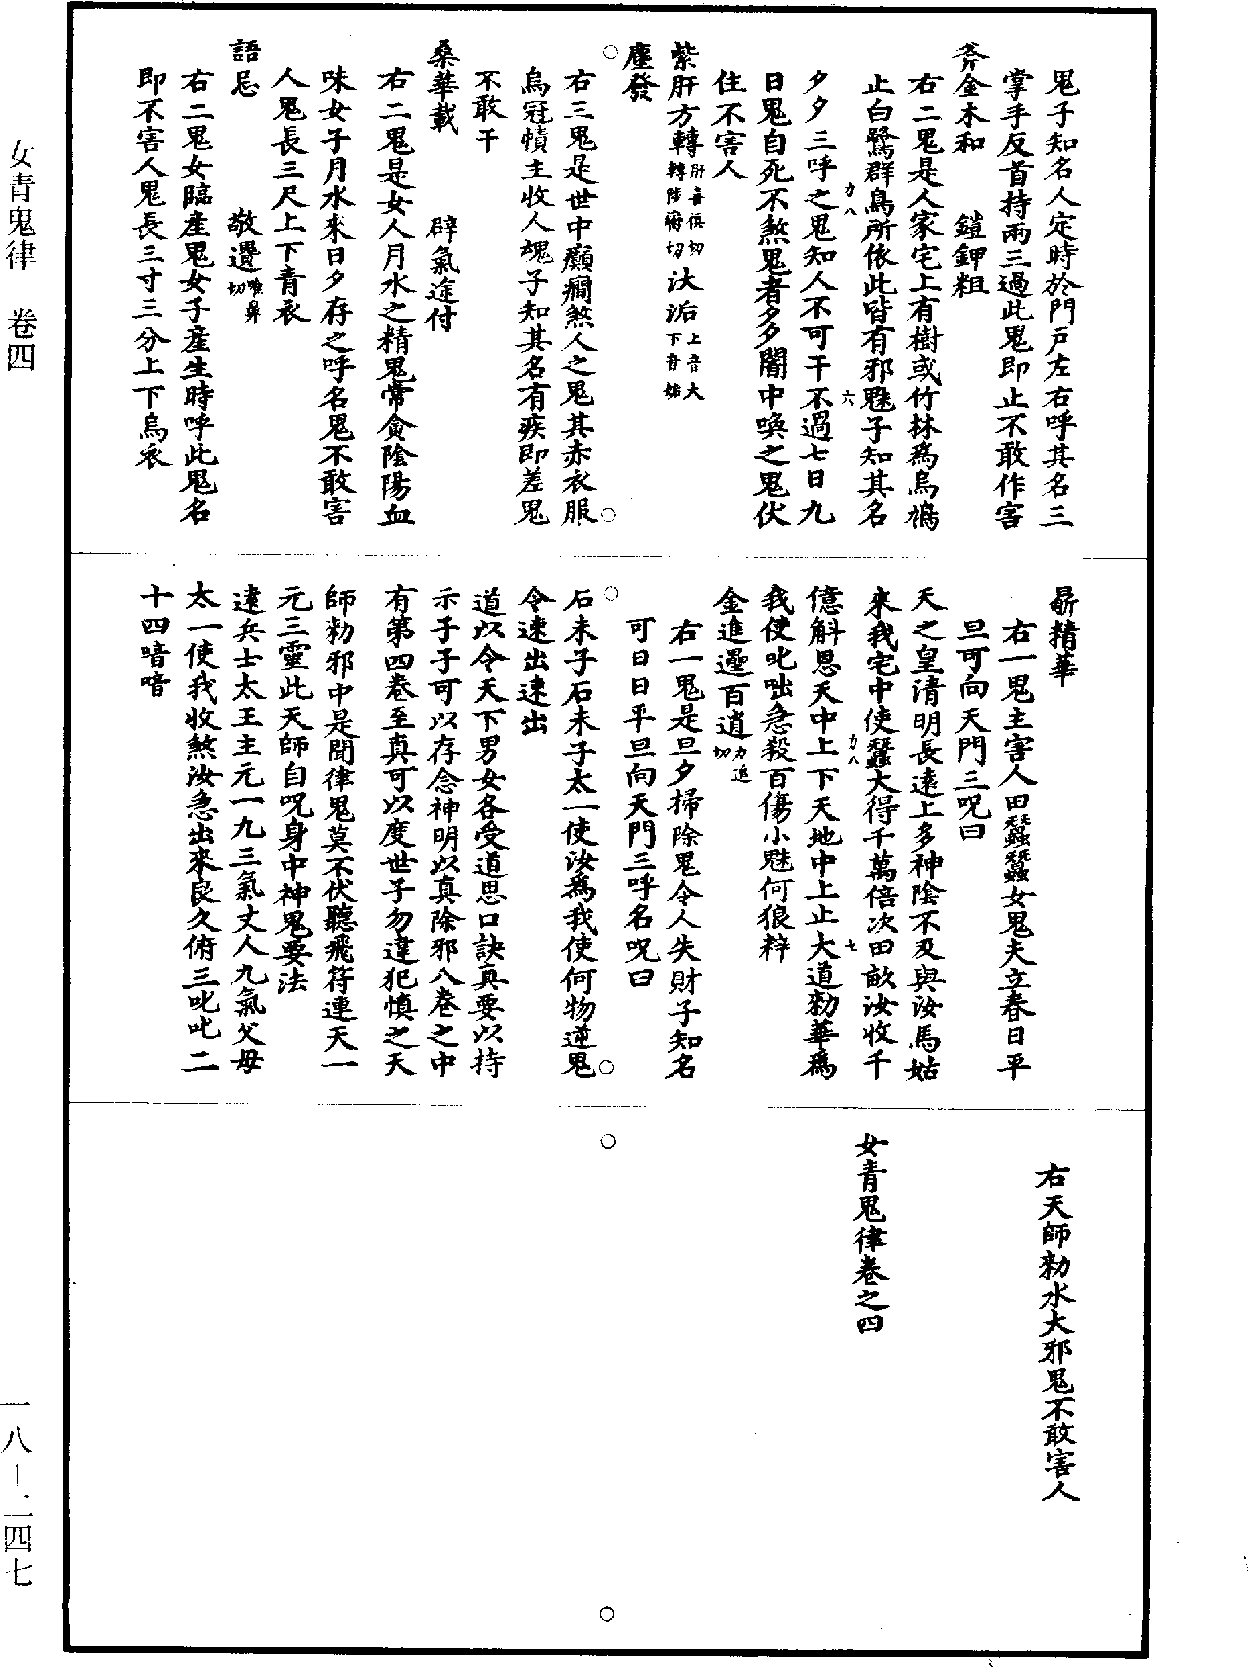 鬼子知名人定時於門戶左右呼其名三
掌手反首持兩三過此鬼即止不敢作害
斧金木和　鎧鉀粗
右二鬼是人家宅上有樹或竹林為烏鵶
止白鷺群鳥所依此皆有邪魅子知其名
夕夕三呼之鬼知人不可干不過七日九
日鬼自死不煞鬼者多夕闇中喚之鬼伏
住不害人
紫肝方轉肝音俱切轉陟衛切汏洉上音大下音姤
塵發
右三鬼是世中癲癎煞人之鬼其赤衣服
烏冠幘主收人魂子知其名有疾即差鬼
不敢干
桑華載　辟氣逵付
右二鬼是女人月水之精鬼常貪陰陽血
味女子月水來日夕存之呼名鬼不敢害
人鬼長三尺上下青衣
語忌　敬遷切
右二鬼女臨產鬼女子產生時呼此鬼名
即不害人鬼長三寸三分上下烏衣
精華
右一鬼主害人田蠶蠶女鬼夫立春日平
旦可向天門三呪曰
天之皇清明長遠上多神陰不及與汝馬姑
來我宅中使蠶大得千萬倍次田畝汝收千
億斛恩天中上下天地中上止大道勑華為
我使叱咄急殺百傷小魅何狼粹
金進邊百逍力追切
右一鬼是旦夕掃除鬼令人失財子知名
可日日平旦向天門三呼名呪曰
石未子石未子太一使汝為我使何物逆鬼
令速出速出
道以令天下男女各受道思口訣真要以持
示子子可以存念神明以真除邪八卷之中
有第四卷至真可以度世子勿違犯慎之天
師勑邪中是聞律鬼莫不伏聽飛符連天一
元三靈此天師自呪身中神鬼要法
逮兵士太王主元一九三氣丈人九氣父母
太一使我收煞汝急出來良久俯三叱叱二
十四喑喑
右天師勑水大邪鬼不敢害人
女青鬼律卷之四
力八
六
力八
七
女青鬼律　卷四
一八—二四七